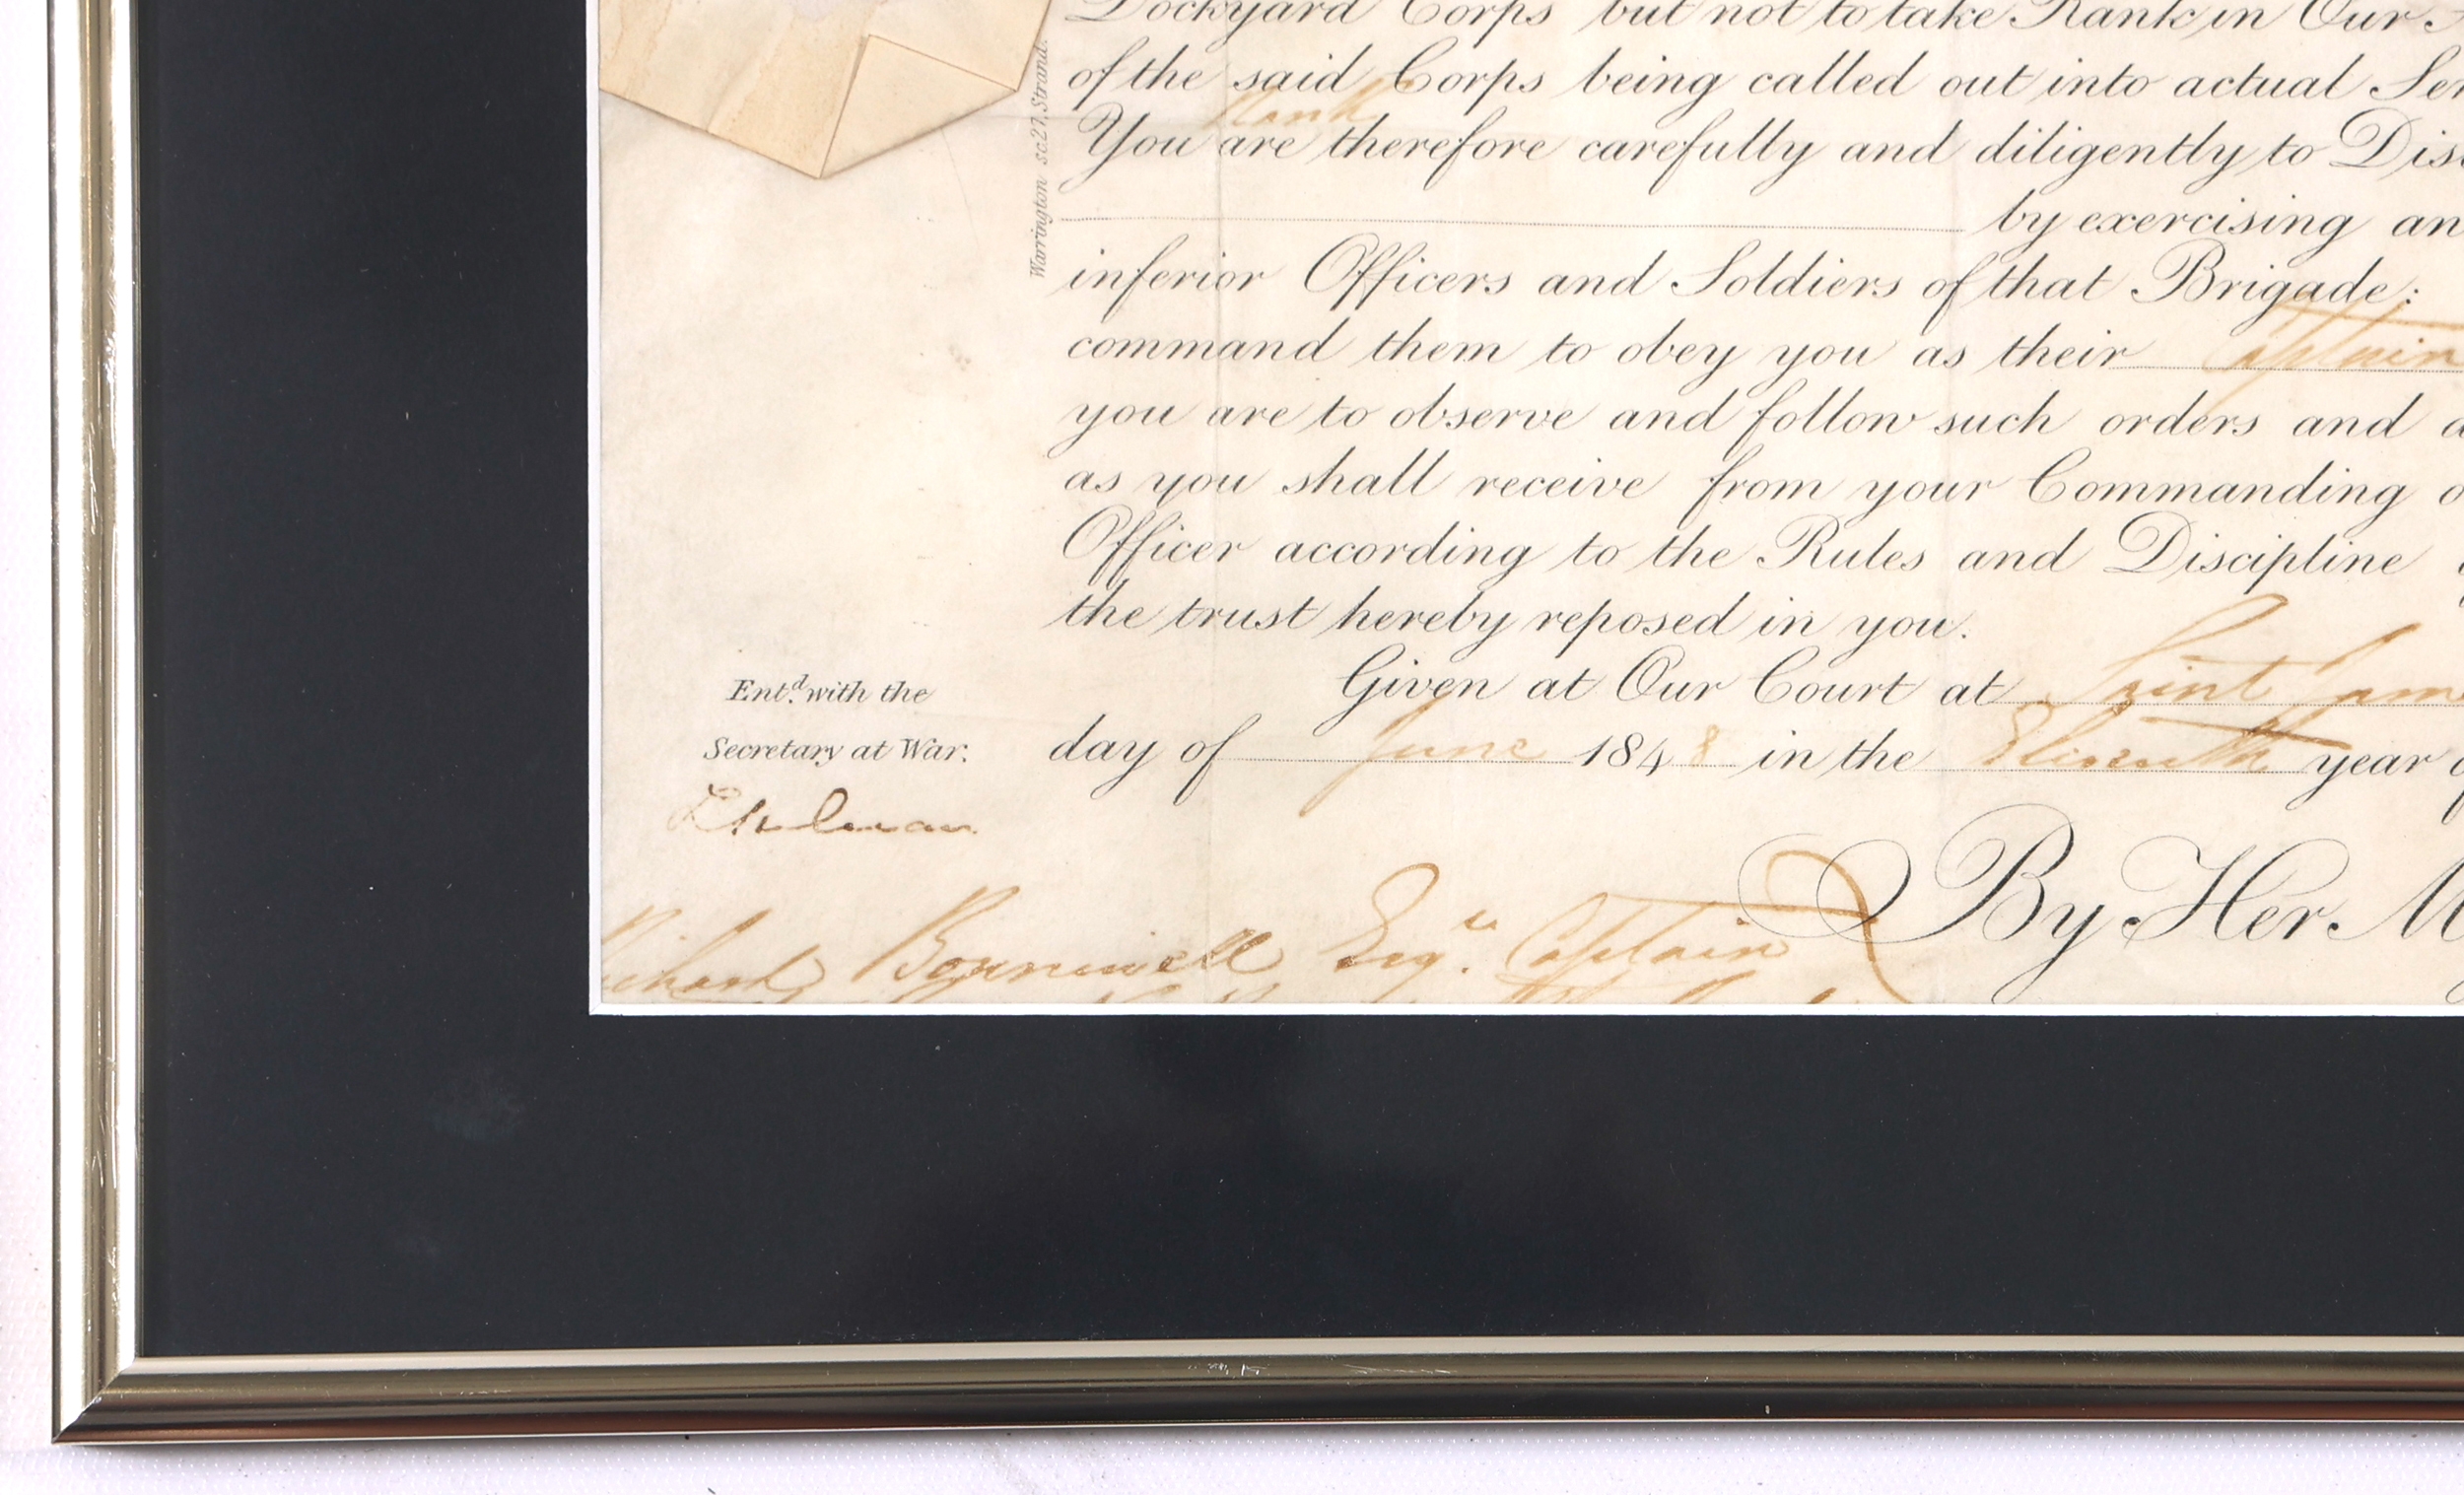 Dockyard Corps but not to take Rank in Our
of the said Corps being called out into actual Ser
Rank
You are therefore carefully and diligently to Dis
by exercising an
inferior Officers and Soldiers of that Brigade:
command them to obey you as their Captain
you are to observe and follow such orders and d
as you shall receive from your Commanding o
Officer according to the Rules and Discipline
the trust hereby reposed in you.
Given at Our Court at Saint Jam
day of June 1848 in the Eleventh year o
By Her M
Warrington sc. 27, Strand.
Entd. with the
Secretary at War.
Richard Esqre Captain